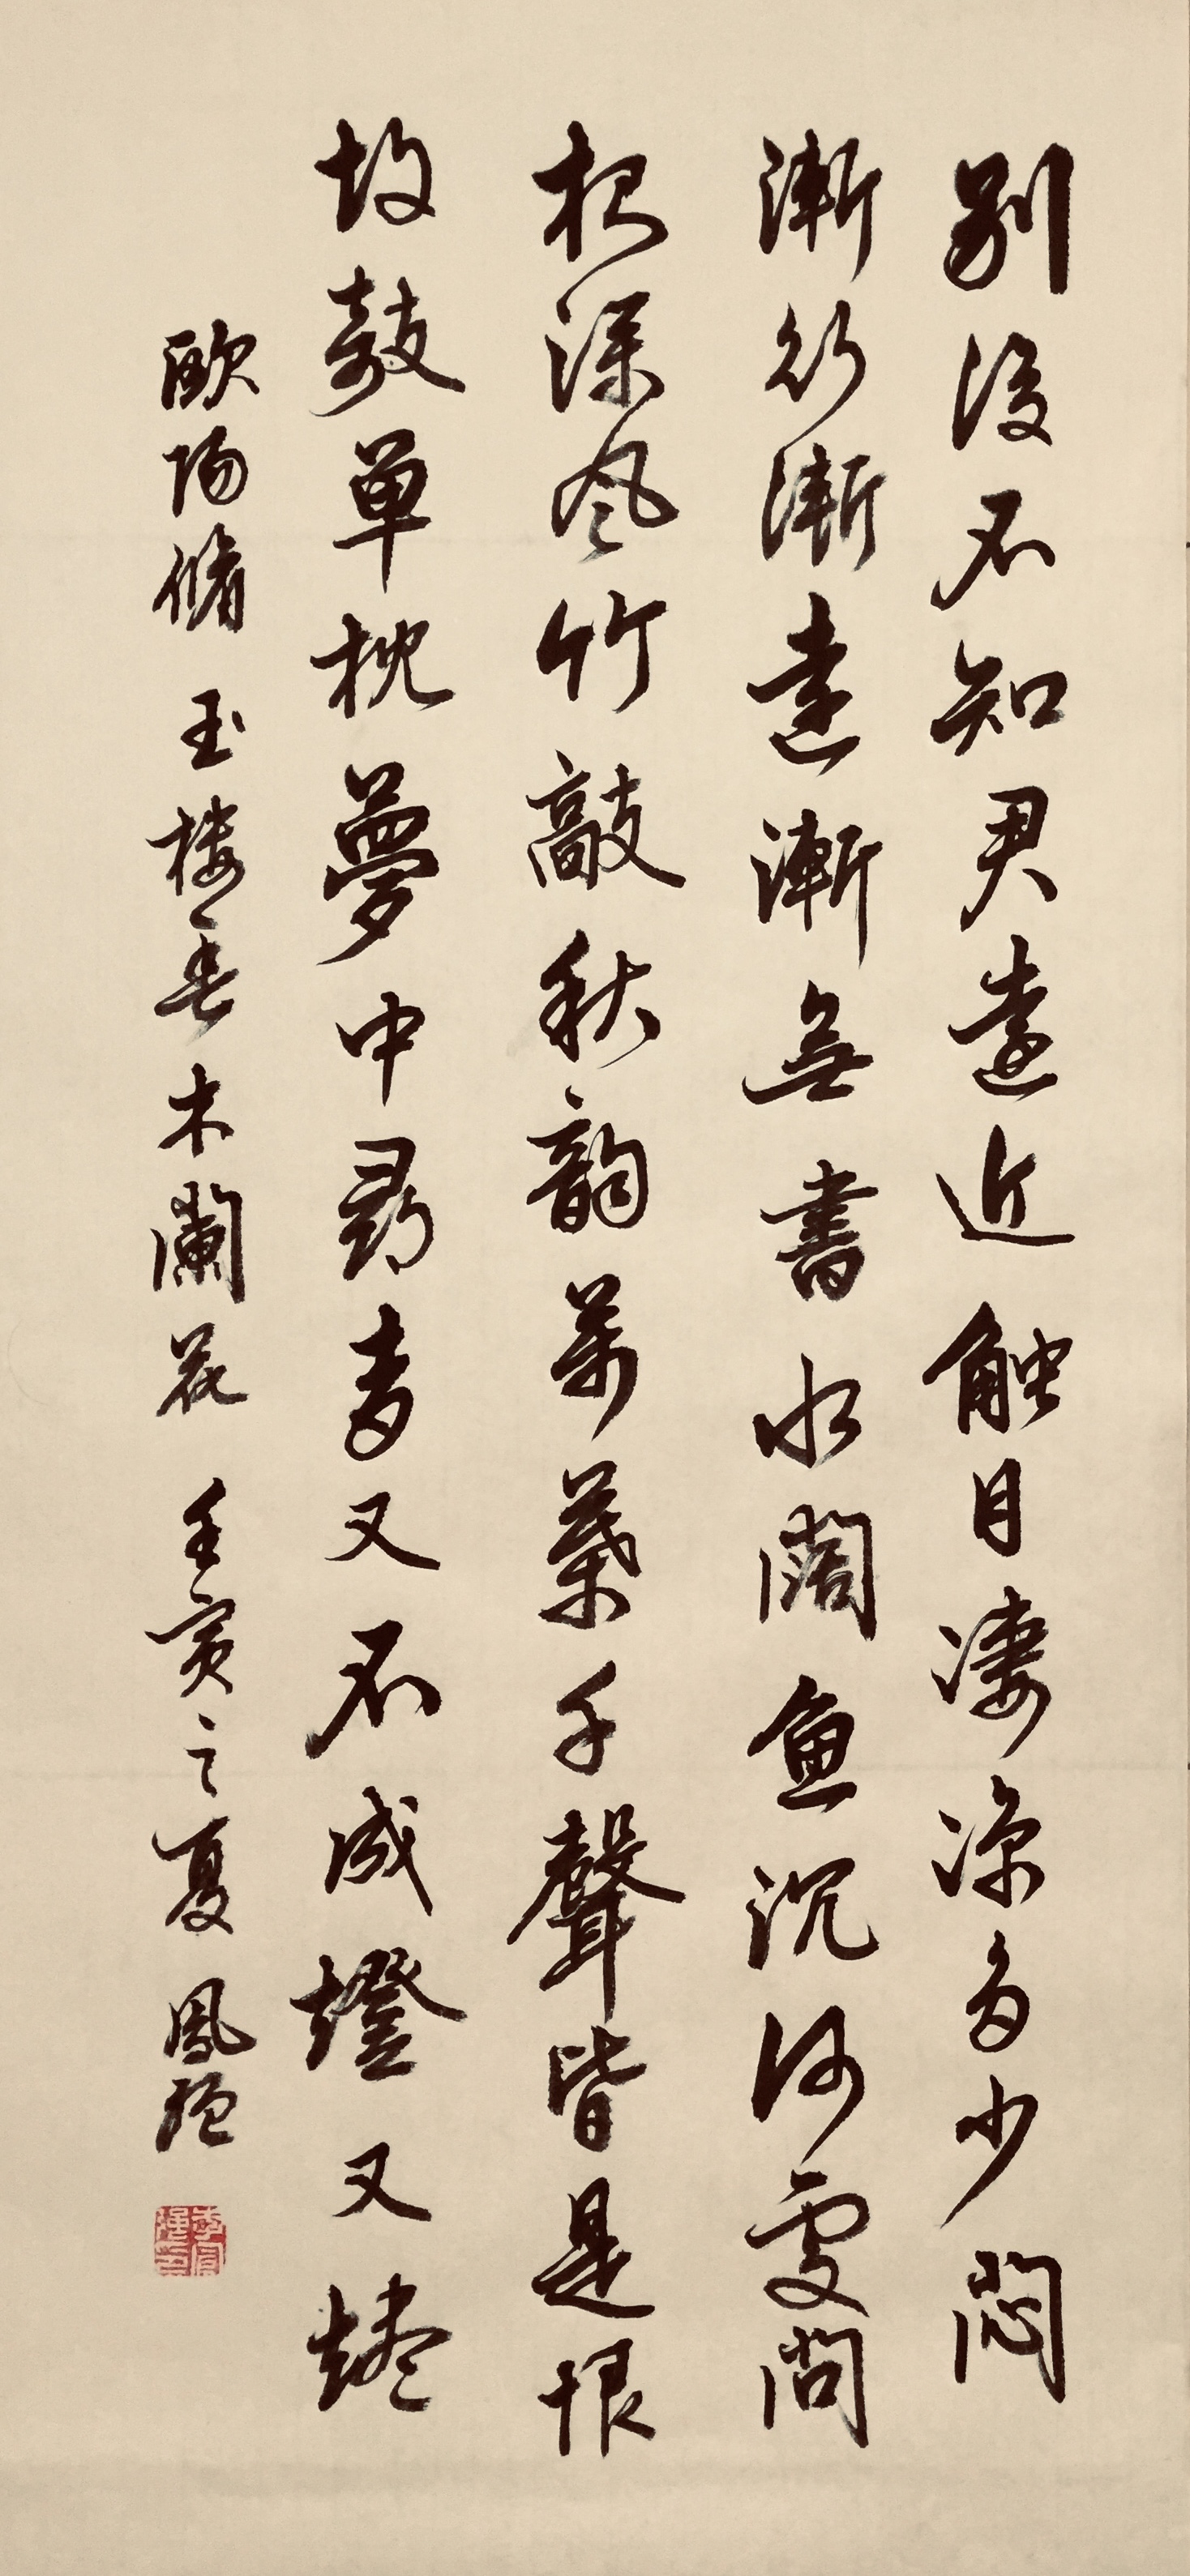 別後不知君遠近触目凄凉多少悶
漸行漸遠漸無書水闊魚沉何處問
夜深風竹敲秋韵萬葉千聲皆是恨
故敧單枕夢中尋夢又不成燈又燼
歐陽脩 玉楼春 木蘭花 壬寅之夏 鳳强